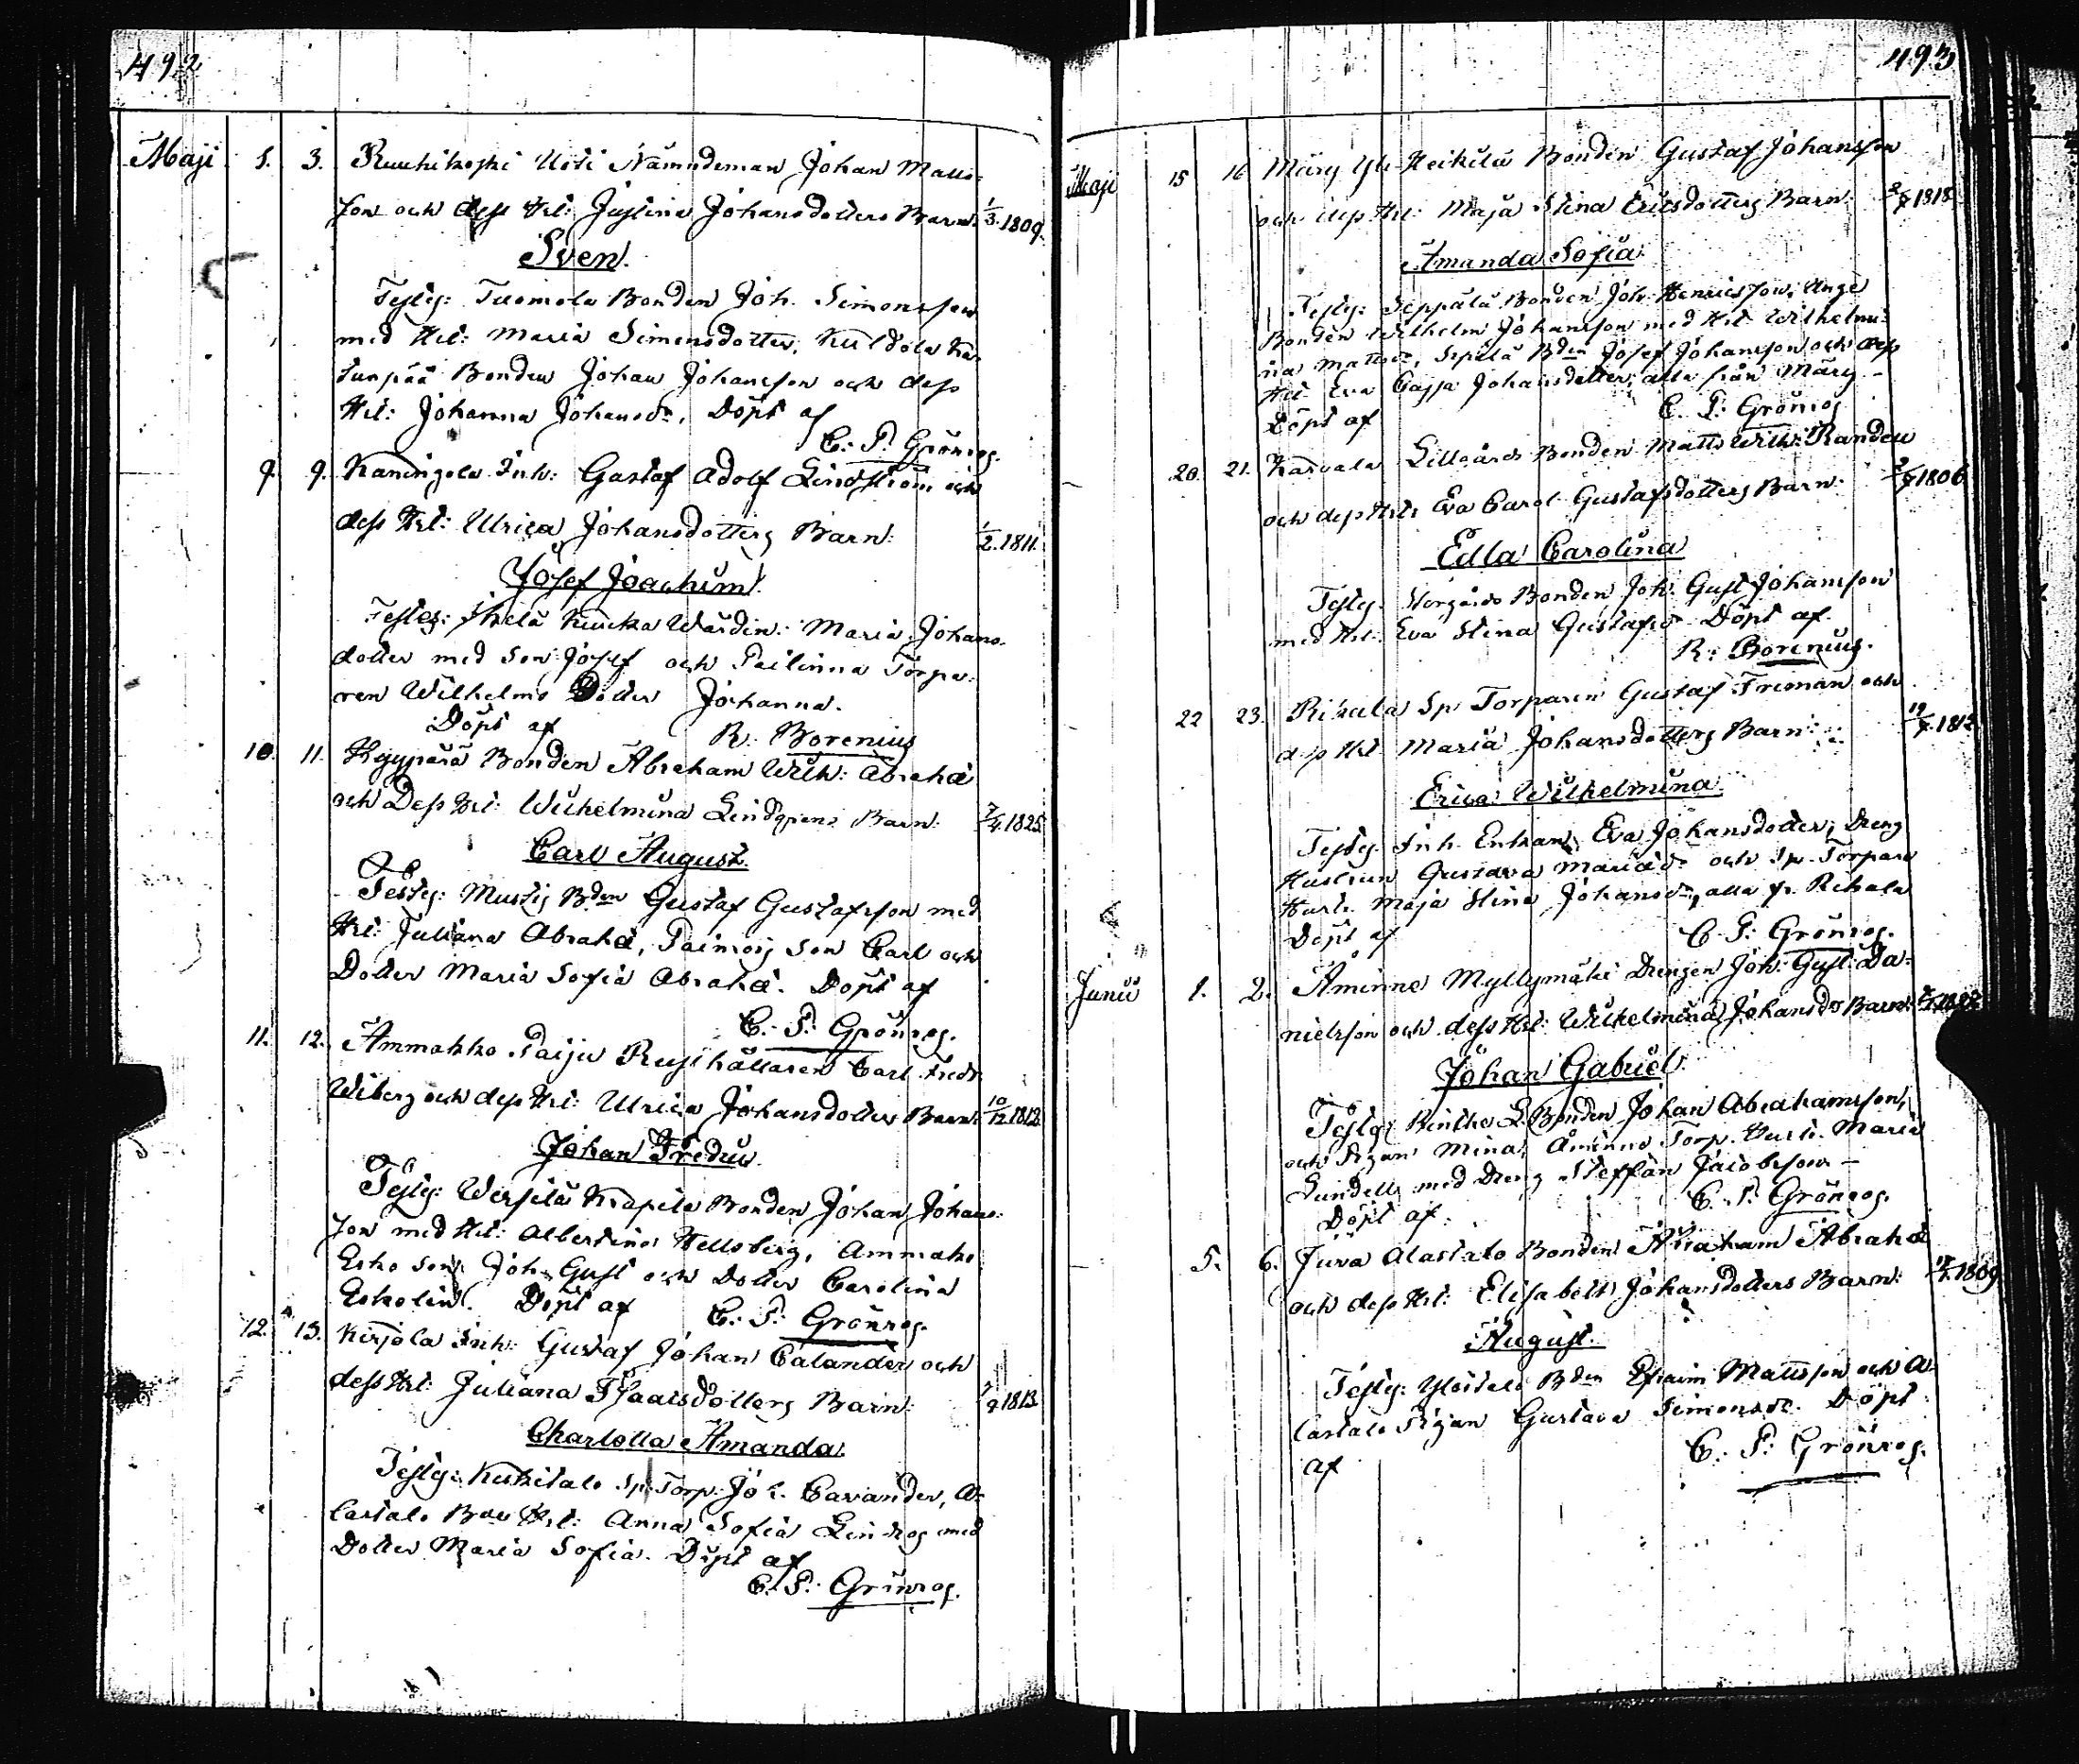 492
Maji 1. 3. Ruuhikoski Uoti Nämndeman Johan Matts-
son och dess Hst: Justina Johansdotters Barn: 1/3. 1809.
Sven.
Testes: Tuomola Bonden Joh. Simonsson
med Hst: Maria Simonsdotter,
Bonden Johan Johansson och dess
Hst: Johanna Johansdr. Döpt af
C. P. Grönros.
9. 9. Kaningola Inh: Gustaf Adolf Lindström och
dess Hst: Ulrica Johansdotters Barn: 1/2. 1811.
Josef Joachim.
Testes: Maria Johans-
dotter med Son Josef och Torpa-
ren Wilhelms Dotter Johanna.
Döpt af R: Borenius
10. 11. Hyypärä Bonden Abraham Wilh: Abrahà
och Dess Hst: Wilhelmina Lindqvists Barn: 7/4. 1825.
Carl August.
Testes: Mustig Bden Gustaf Gustafsson med
Hst: Juliana Abrahà, Son Carl och
Dotter Maria Sofia Abrahà. Döpt af
C. P. Grönros.
11. 12. Ammakko Paiju Rusthållaren Carl Fredr.
Wiberg och dess Hst: Ulrica Johansdotters Barn: 10/12. 1813.
Johan Fredric.
Testes: Bonden Johan Johans-
son med Hst: Albertina Hellsberg, Ammako
Esko Son Joh. Gust och Dotter Carolina
Eskolin. Döpt af C. P. Grönros.
12. 13. Kirjola Inh: Gustaf Johan Calander och
dess Hst: Juliana Isaacsdotters Barn: 1813.
Charlotta Amanda.
Testes: Kukitalo Sp. Torp. Joh. Cavander, A-
lastalo Hst: Anna Sofia Lindros med
Dotter Maria Sofia. Döpt af
C. P. Grönros.
493
Maji 15 16 Märy Yli-Heikilä Bonden Gustaf Johansson
och dess Hst: Maja Stina Ericsdotters Barn: 1818.
Amanda Sofia
Testes: Seppälä Bonden Joh. Henricsson,
Bonden Wilhelm Johansson med Hst. Wilhelmi-
na Mattsdr, Sepälä Bden Josef Johansson och dess
Hst Eva Cajsa Johansdotter, alla från Märy.
Döpt af C. P. Grönros
20. 21. Karvala Lillgårds Bonden Matts Wilh: Randell
och dess Hst: Eva Carol. Gustafsdotters Barn: 1806.
Edla Carolina
Testes. Storgårds Bonden Joh. Gust Johansson
med Hst. Eva Stina Gustafsdr. Döpt af
R: Borenius.
22 23. Rikala Sp. Torparen Gustaf Freman och
dess Hst. Maria Johansdotters Barn: 1812
Erica Wilhelmina
Testes. Inh. Enkan Eva Johansdotter, Dreng
Hustrun Gustava och Sp. Torpare
Hust. Maja Stina Johansdr, alla fr. Rikala
Döpt af C. P. Grönros.
Junii 1. 2. Åminne Myllymäki Drengen Joh: Gust: Da-
nielsson och dess Hst: Wilhelmina Johansdrs Barn:
Johan Gabriel.
Testes: Bonden Johan Abrahamsson,
och Pigan Mina, Åminne Torp. Hust. Maria
Lundell med Dreng Steffan Jacobsson
Döpt af. C. P. Grönros.
5. 6. Juva Alastalo Bonden Abraham Abrahà
och dess Hst: Elisabeth Johansdotters Barn: 1809
August.
Testes: Ylöstalo Bden Efraim Mattsson och A-
lastalo Pigan Gustava Simonsdr. Döpt
af C. P. Grönros.